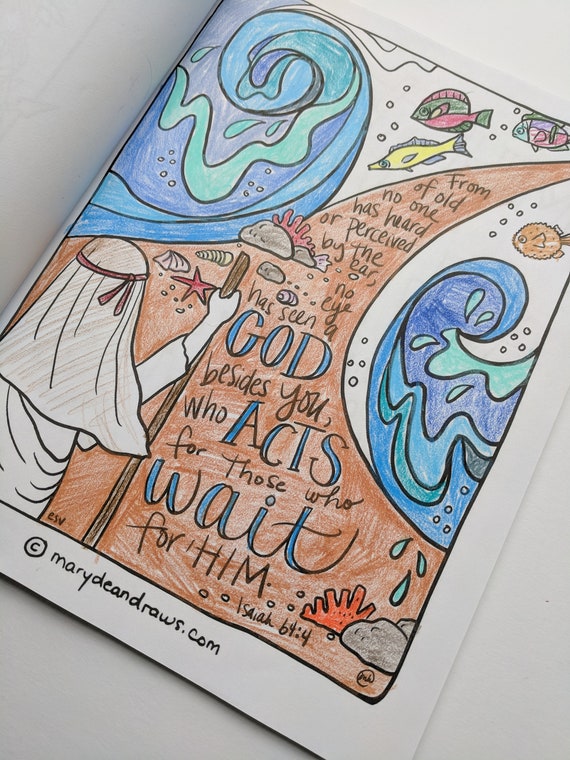 From
of old
no one
has heard
or perceived
by the
ear,
no
eye
has seen a
GOD
besides You,
who ACTS
for those who
wait
for HIM.
Isaiah 64:4
ESV
© marydeandraws.com